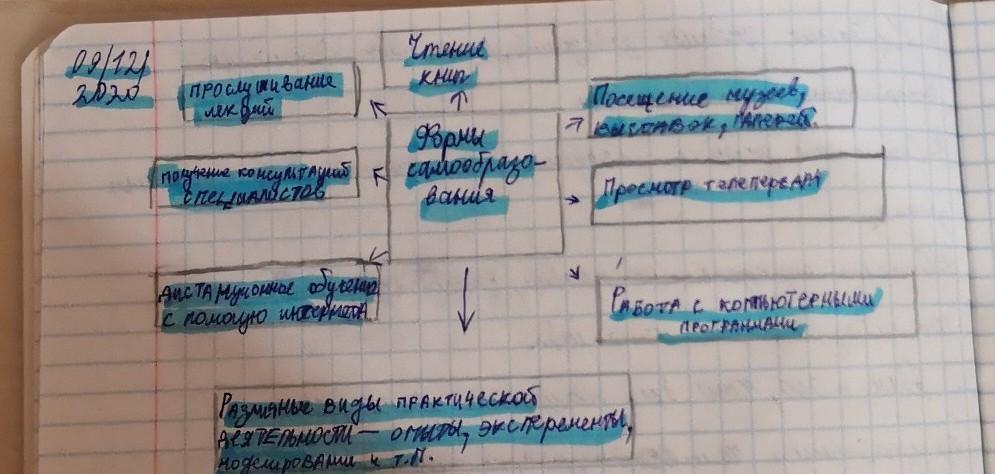 09/12/
2020
Чтение
книг
прослушивание
лекций
Посещение музеев,
выставок, галерей.
Формы
самообразо-
вания
получение консультаций
специалистов
Просмотр телепередач
дистанционное обучение
с помощю интернета
Работа с компьютерными
программами
Различные виды практической
деятельности — опыты, эксперементы,
моделирования и т.п.